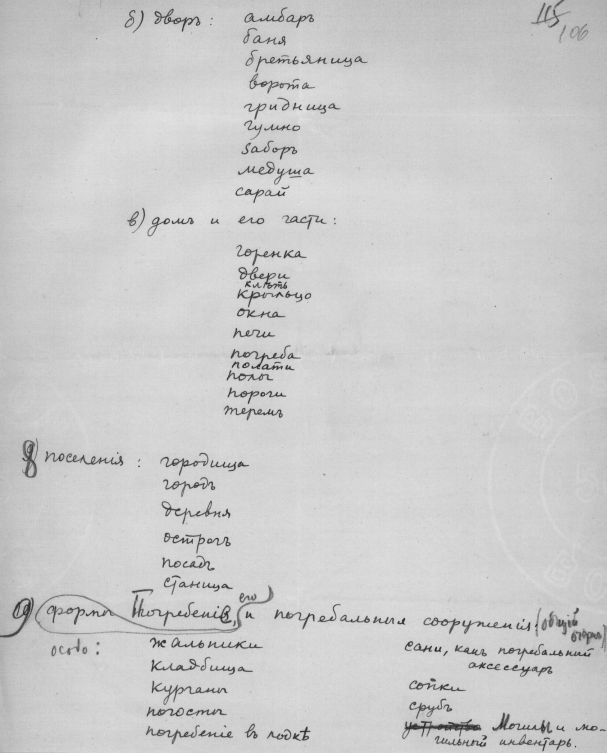 115
106
б) дворъ: амбаръ
баня
бретьяница
ворота
гридница
гумно
заборъ
медуша
сарай
в) домъ и его части:
горенка
двери
клѣть
крыльцо
окна
печи
погреба
полати
полы
пороги
теремъ
9) поселенія: городища
городъ
деревня
острогъ
посадъ
станица
10) формы Погребенія, его и погребальныя сооруженія (общій очеркъ)
особо: жальники
кладбища
курганы
погосты
погребеніе въ лодкѣ
сани, какъ погребальный
аксессуаръ
сопки
срубъ
устройство Могилы и мо-
гильный инвентарь.